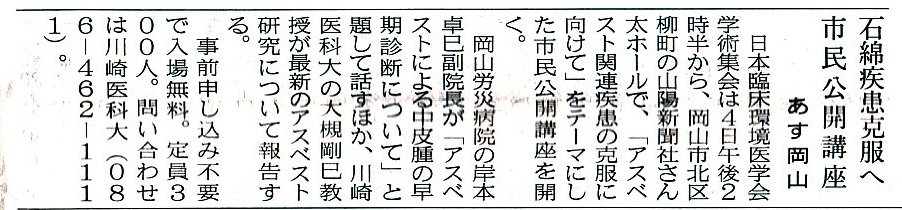 石綿疾患克服へ
市民公開講座
あす岡山
日本臨床環境医学会
学術集会は４日午後２
時半から、岡山市北区
柳町の山陽新聞社さん
太ホールで、「アスベ
スト関連疾患の克服に
向けて」をテーマにし
た市民公開講座を開
く。
岡山労災病院の岸本
卓巳副院長が「アスベ
ストによる中皮腫の早
期診断について」と
題して話すほか、川崎
医科大の大槻剛巳教
授が最新のアスベスト
研究について報告す
る。
事前申し込み不要
で入場無料。定員３
００人。問い合わせ
は川崎医科大（０８
６―４６２―１１１
１）。